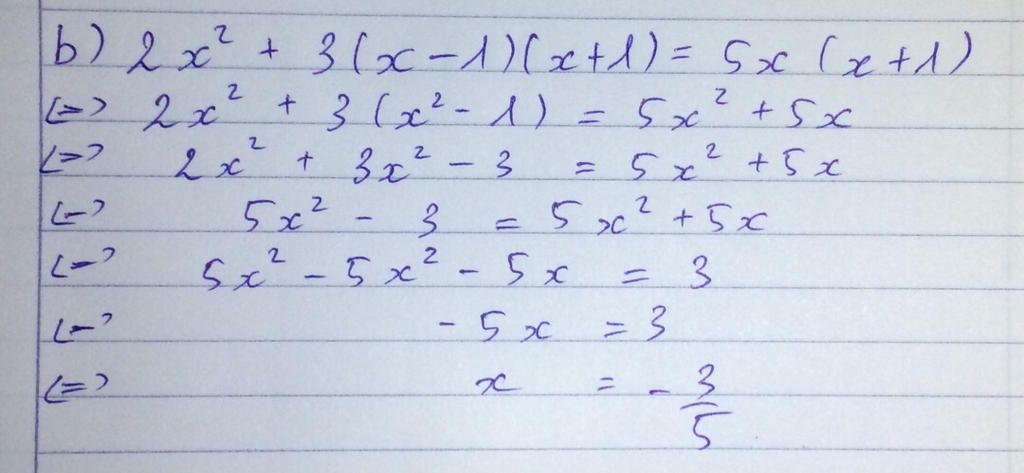 b) 2x² + 3(x-1)(x+1) = 5x (x+1)
<=> 2x² + 3 (x² - 1) = 5x² + 5x
<=> 2x² + 3x² - 3 = 5x² + 5x
<=> 5x² - 3 = 5x² + 5x
<=> 5x² - 5x² - 5x = 3
<=> - 5x = 3
<=> x = - 3/5